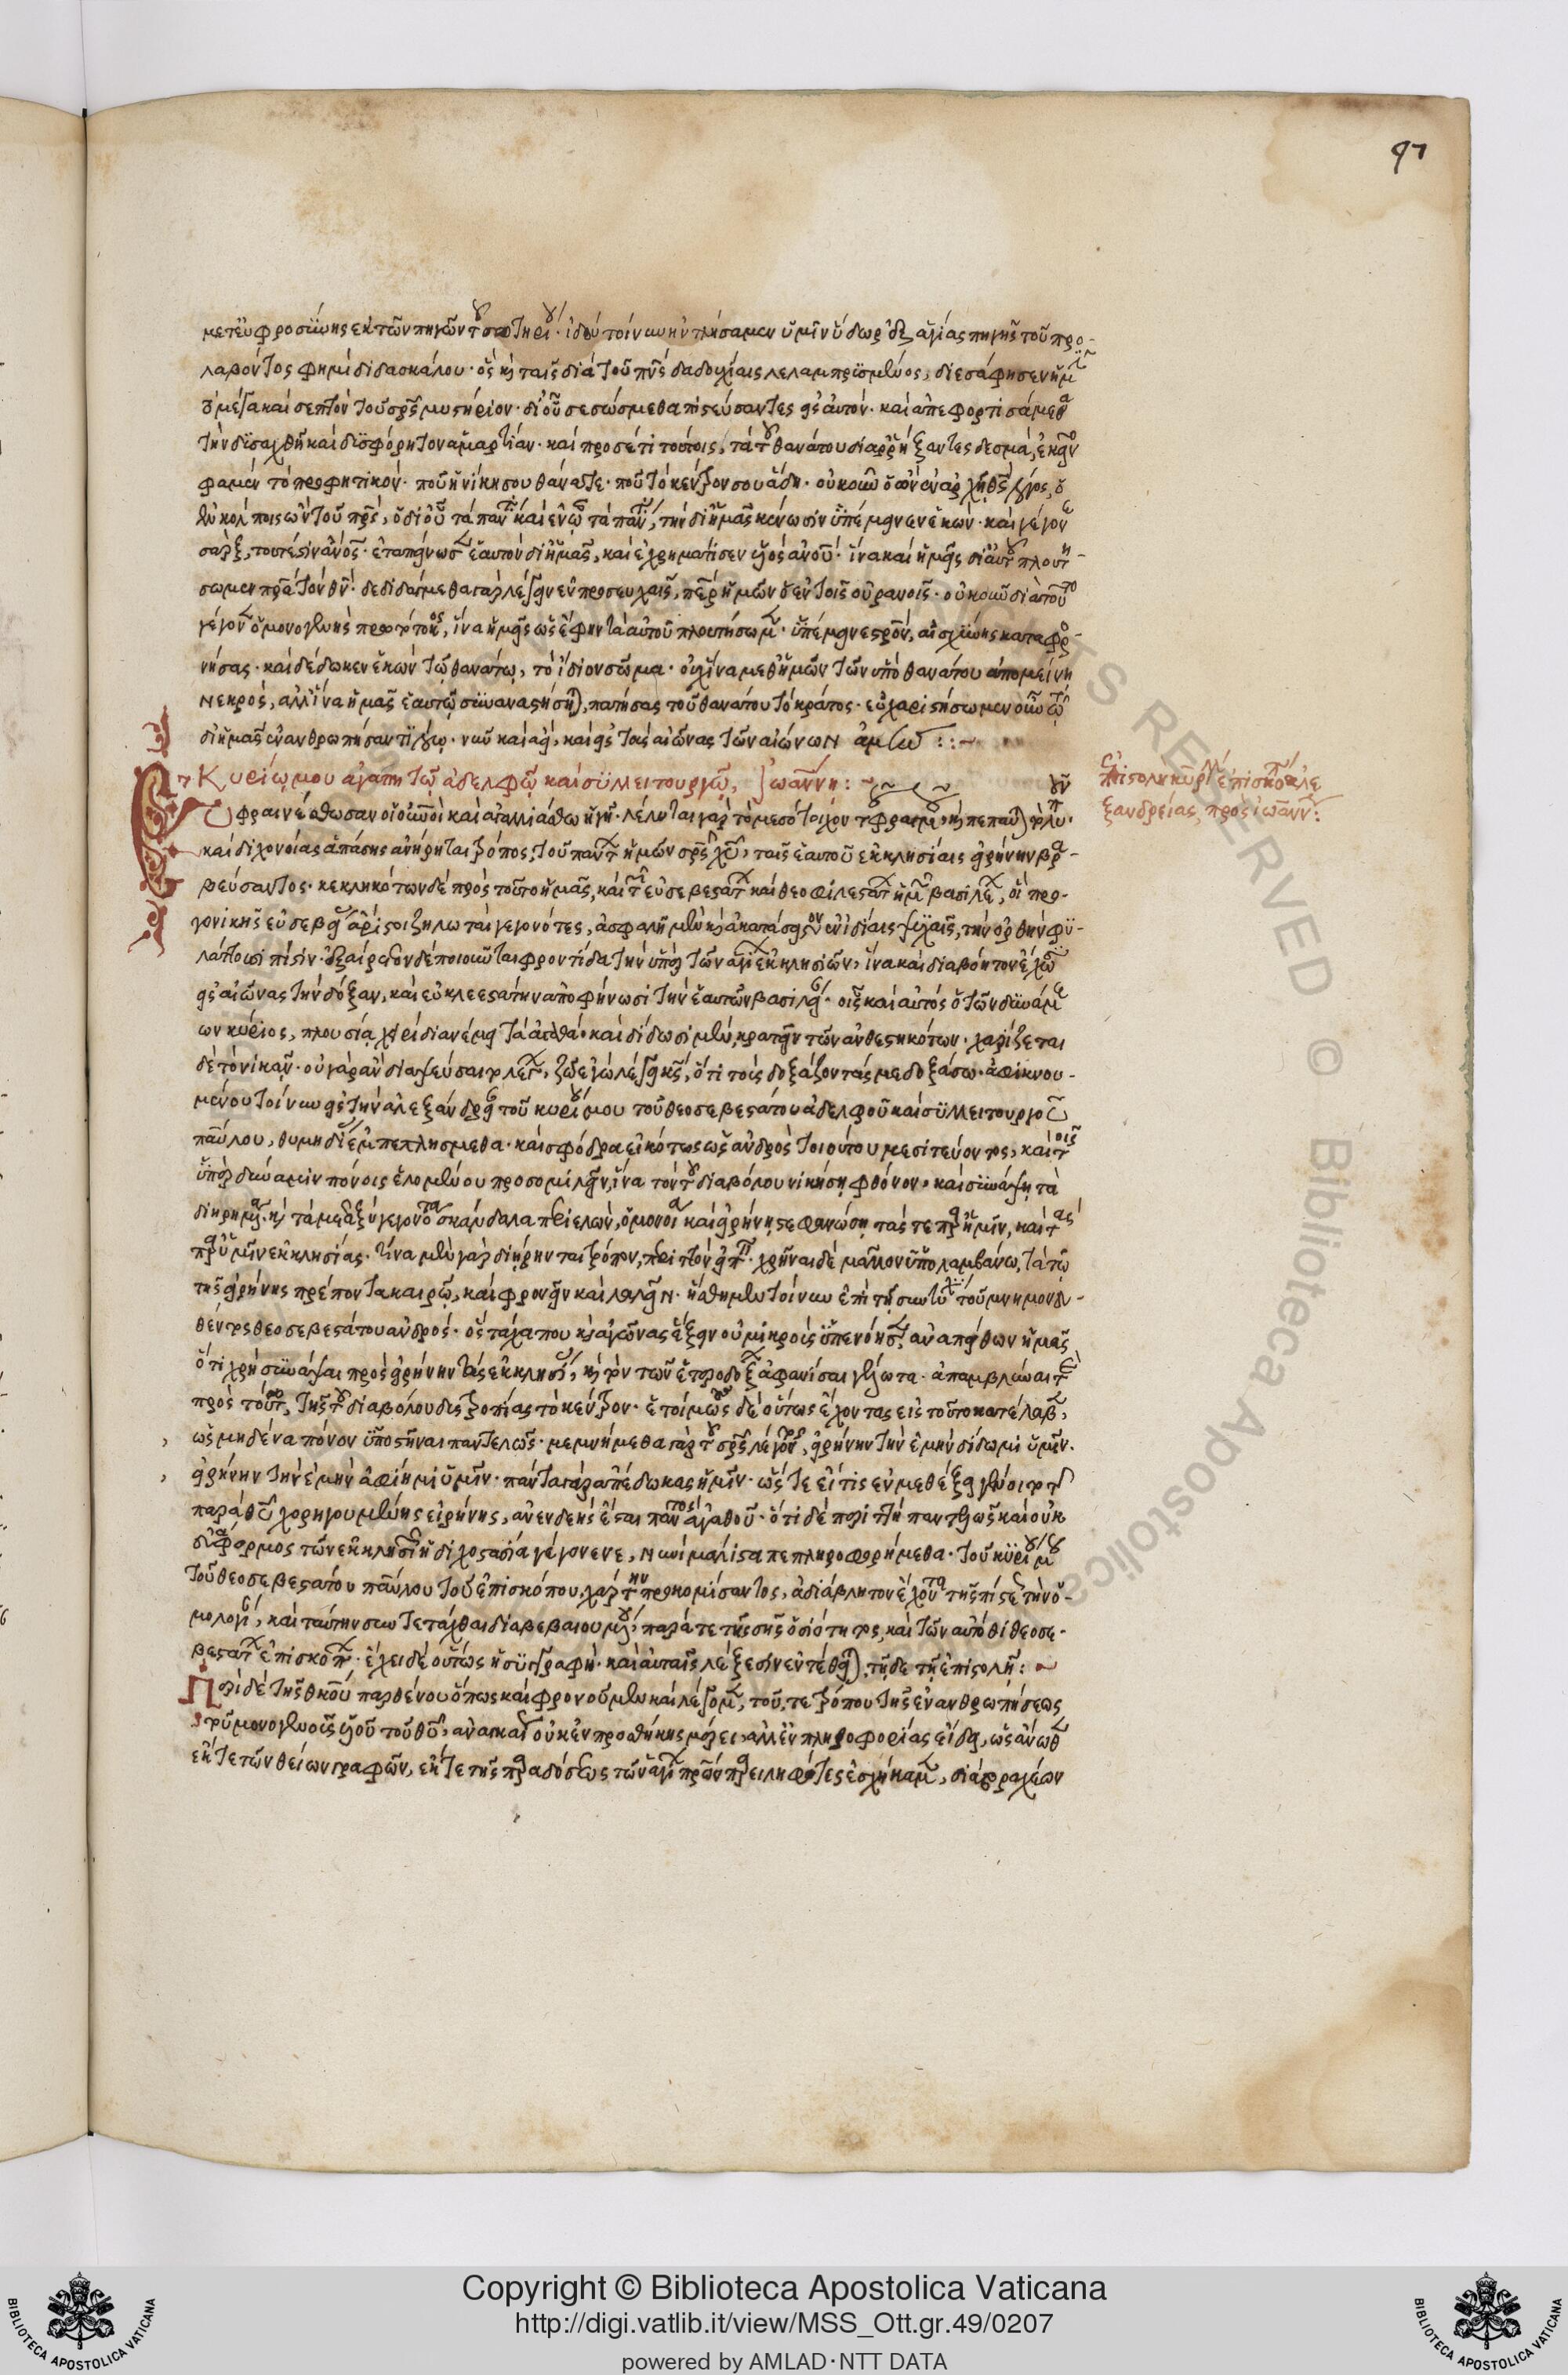 97
μετ' εὐφροσύνης ἐκ τῶν πηγῶν τοῦ σωτηρίου· ἰδοὺ τοίνυν ἠντλήσαμεν ὑμῖν ὕδωρ ἐξ ἁγίας πηγῆς τοῦ προ-
λαβόντος φημὶ διδασκάλου· ὃς καὶ ταῖς διὰ τοῦ πνς δαδουχίαις λελαμπρυσμένος, διεσάφησεν ἡμῖν
τὸ μέγα καὶ σεπτὸν τοῦ σρς μυστήριον· δι' οὗ σεσώσμεθα πιστεύσαντες εἰς αὐτόν· καὶ ἀπεφορτισάμεθα
τὴν δυσαχθῆ καὶ δυσφόρητον ἁμαρτίαν· καὶ προσέτι τούτοις, τὰ τοῦ θανάτου διαρρήξαντες δεσμά, ἐκεῖνο
φαμὲν τὸ προφητικόν· ποῦ ἡ νίκη σου θάνατε· ποῦ τὸ κέντρον σου ἅδη· οὐκοῦν ὁ ὢν ἐν ἀρχῇ θς λόγος, ὁ
ἐν κόλποις ὢν τοῦ πρς, ὁ δι' οὗ τὰ πάντα καὶ ἐν ᾧ τὰ πάντα, τὴν δι' ἡμᾶς κένωσιν ὑπέμεινεν ἑκών· καὶ γέγονε
σάρξ, τουτέστιν ἀνος· ἐταπείνωσεν ἑαυτὸν δι' ἡμᾶς, καὶ ἐχρημάτισεν υἱὸς ἀνου· ἵνα καὶ ἡμεῖς δι' αὐτοῦ πλουτή-
σωμεν πρα τὸν θν· δεδιδάγμεθα γὰρ λέγειν ἐν προσευχαῖς, περ ἡμῶν ὁ ἐν τοῖς οὐρανοῖς· οὐκοῦν διὰ τοῦτο
γέγονεν ὁ μονογενὴς πρωτότοκος, ἵνα ἡμεῖς ὡς ἔφην τὰ αὐτοῦ πλουτήσωμεν· ὑπέμεινε σρον, αἰσχύνης καταφρο-
νήσας· καὶ δέδωκεν ἑκὼν τῷ θανάτῳ, τὸ ἴδιον σῶμα· οὐχ ἵνα μεθ' ἡμῶν τῶν ὑπὸ θανάτου ἀπομείνῃ
νεκρός, ἀλλ' ἵνα ἡμᾶς ἑαυτῷ συναναστήσηται, πατήσας τοῦ θανάτου τὸ κράτος· εὐχαριστήσωμεν οὖν τῷ
δι' ἡμᾶς ἐνανθρωπήσαντι λόγῳ· νῦν καὶ ἀεί, καὶ εἰς τοὺς αἰῶνας τῶν αἰώνων ἀμήν ::~
Κυρίῳ μου ἀγαπητῷ ἀδελφῷ καὶ συλλειτουργῷ, Ἰωάννῃ:
Ἐπιστολὴ κυρίλλου ἐπισκόπου ἀλε
ξανδρείας, πρὸς ἰωάννην:
Εὐφραινέσθωσαν οἱ οὐνοὶ καὶ ἀγαλλιάσθω ἡ γῆ· λέλυται γὰρ τὸ μεσότοιχον τοῦ φραγμοῦ, καὶ πέπαυται τὸ λυποῦν·
καὶ διχονοίας ἁπάσης ἀνήρηται τρόπος, τοῦ πάντων ἡμῶν σρς χυ, ταῖς ἑαυτοῦ ἐκκλησίαις εἰρήνην βρα-
βεύσαντος· κεκληκότων δὲ πρὸς τοῦτο ἡμᾶς, καὶ τῶν εὐσεβεστάτων καὶ θεοφιλεστάτων ἡμῶν βασιλέων, οἳ προ-
γονικῆς εὐσεβείας ἄριστοι ζηλωταὶ γεγονότες, ἀσφαλῆ μὲν καὶ ἀκατάσειστον ἐν ἰδίαις ψυχαῖς, τὴν ὀρθὴν φυ-
λάττουσι πίστιν· ἐξαίρετον δὲ ποιοῦνται φροντίδα τὴν ὑπὲρ τῶν ἁγίων ἐκκλησιῶν, ἵνα καὶ διαβόητον ἔχωσιν
εἰς αἰῶνας τὴν δόξαν, καὶ εὐκλεεστάτην ἀποφήνωσι τὴν ἑαυτῶν βασιλείαν· οἷς καὶ αὐτὸς ὁ τῶν δυνάμε
ων κύριος, πλουσίᾳ χειρὶ διανέμει τὰ ἀγαθά· καὶ δίδωσι μὲν, κρατεῖν τῶν ἀνθεστηκότων· χαρίζεται
δὲ τὸ νικᾶν· οὐ γὰρ ἂν διαψεύσαιτο λέγων, ζῶ ἐγὼ λέγει κς, ὅτι τοὺς δοξάζοντάς με δοξάσω· ἀφικνου-
μένου τοίνυν εἰς τὴν ἀλεξάνδρειαν τοῦ κυρίου μου τοῦ θεοσεβεστάτου ἀδελφοῦ καὶ συλλειτουργοῦ
παύλου, θυμηδίας ἐμπεπλήσμεθα· καὶ σφόδρα εἰκότως ὡς ἀνδρὸς τοιούτου μεσιτεύοντος, καὶ τοῖς
ὑπὲρ δύναμιν πόνοις ἑλομένου προσομιλεῖν, ἵνα τὸν τοῦ διαβόλου νικήσῃ φθόνον· καὶ συνάψῃ τὰ
διῃρημένα· καὶ τὰ μεταξὺ γεγονότα σκάνδαλα περιελὼν, ὁμονοίᾳ καὶ εἰρήνῃ στεφανώσῃ τάς τε παρ' ἡμῖν, καὶ τὰς
παρ' ὑμῖν ἐκκλησίας· τίνα μὲν γὰρ διῄρηνται τρόπον, περιττὸν εἰπεῖν· χρῆναι δὲ μᾶλλον ὑπολαμβάνω, τὰ τῷ
τῆς εἰρήνης πρέποντα καιρῷ, καὶ φρονεῖν καὶ λαλεῖν· ἥσθημεν τοίνυν ἐπὶ τῇ συντυχίᾳ τοῦ μνημονευ-
θέντος θεοσεβεστάτου ἀνδρός· ὃς τάχα που καὶ ἀγῶνας ἕξειν οὐ μικροὺς ὑπενόησεν, ἀναπείθων ἡμᾶς
ὅτι χρὴ συνάψαι πρὸς εἰρήνην τὰς ἐκκλησίας, καὶ τὸν τῶν ἑτεροδόξων ἀφανίσαι γέλωτα· ἀπαμβλῦναί τε
πρὸς τούτῳ, τῆς τοῦ διαβόλου δυστροπίας τὸ κέντρον· ἑτοίμως δὲ οὕτως ἔχοντας εἰς τοῦτο κατέλαβεν,
ὡς μηδένα πόνον ὑποστῆναι παντελῶς· μεμνήμεθα γὰρ τοῦ σρς λέγοντος, εἰρήνην τὴν ἐμὴν δίδωμι ὑμῖν·
εἰρήνην τὴν ἐμὴν ἀφίημι ὑμῖν· πάντα γὰρ ἀπέδωκας ἡμῖν· ὥστε εἴ τις ἐν μεθέξει γένοιτο τῆς
παρὰ θυ χορηγουμένης εἰρήνης, ἀνενδεὴς ἔσται παντὸς ἀγαθοῦ· ὅτι δὲ περιττὴ παντελῶς καὶ οὐκ
εὐάφορμος τῶν ἐκκλησιῶν ἡ διχοστασία γέγονε, νυνὶ μάλιστα πεπληροφορήμεθα· τοῦ κυρίου μου
τοῦ θεοσεβεστάτου παύλου τοῦ ἐπισκόπου, χάρτην προκομίσαντος, ἀδιάβλητον ἔχοντα τῆς πίστεως τὴν ὁ-
μολογίαν, καὶ ταύτην συντετάχθαι διαβεβαιουμένου, παρά τε τῆς σῆς ὁσιότητος, καὶ τῶν αὐτόθι θεοσε-
βεστάτων ἐπισκόπων· ἔχει δὲ οὕτως ἡ συγγραφή· καὶ αὐταῖς λέξεσιν ἐντέθειται τῇδε τῇ ἐπιστολῇ:
Περὶ δὲ τῆς θκου παρθένου ὅπως καὶ φρονοῦμεν καὶ λέγομεν, τοῦ, τε τρόπου τῆς ἐνανθρωπήσεως
τοῦ μονογενοῦς υἱοῦ τοῦ θυ, ἀναγκαίως οὐκ ἐν προσθήκης μέρει, ἀλλ' ἐν πληροφορίας εἴδει, ὡς ἄνωθεν
ἔκ τε τῶν θείων γραφῶν, ἔκ τε τῆς παραδόσεως τῶν ἁγίων πρων παρειληφότες ἐσχήκαμεν, διὰ βραχέων
RIGHTS RESERVED © Biblioteca Apostolica
Copyright © Biblioteca Apostolica Vaticana
http://digi.vatlib.it/view/MSS_Ott.gr.49/0207
powered by AMLAD·NTT DATA
BIBLIOTECA APOSTOLICA VATICANA
BIBLIOTECA APOSTOLICA VATICANA